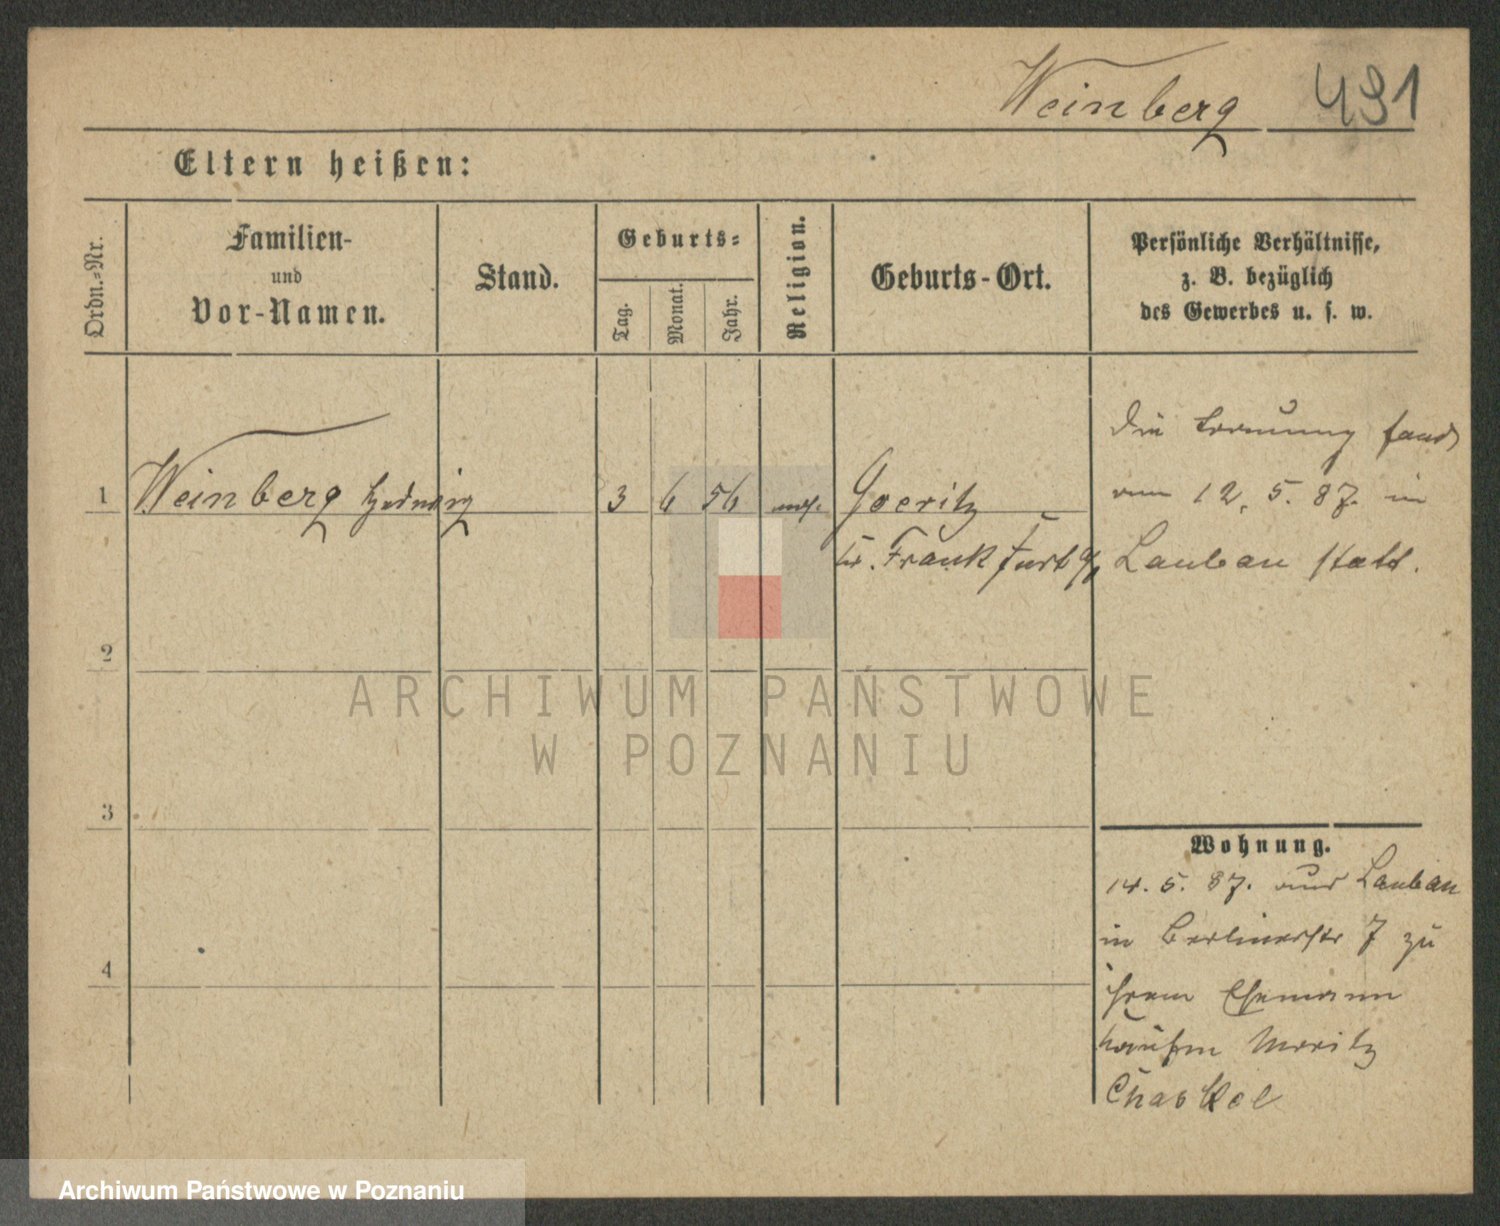 Weinberg 491
Eltern heißen:
Ordn.-Nr.
Familien-
und
Vor-Namen.
Stand.
Geburts-
Tag.
Monat.
Jahr.
Religion.
Geburts-Ort.
Persönliche Verhältnisse,
z. B. bezüglich
des Gewerbes u. s. w.
1 Weinberg Hedwig 3 6 56 mos. Goeritz
Kr. Frankfurt a/
Die Trauung fand
am 12. 5. 87. in
Lauban statt.
2
3
4
Wohnung.
14. 5. 87. aus Lauban
in Berlinerstr 7 zu
ihrem Ehemann
Kaufm Moritz
Chaskel
ARCHIWUM PAŃSTWOWE
W POZNANIU
Archiwum Państwowe w Poznaniu